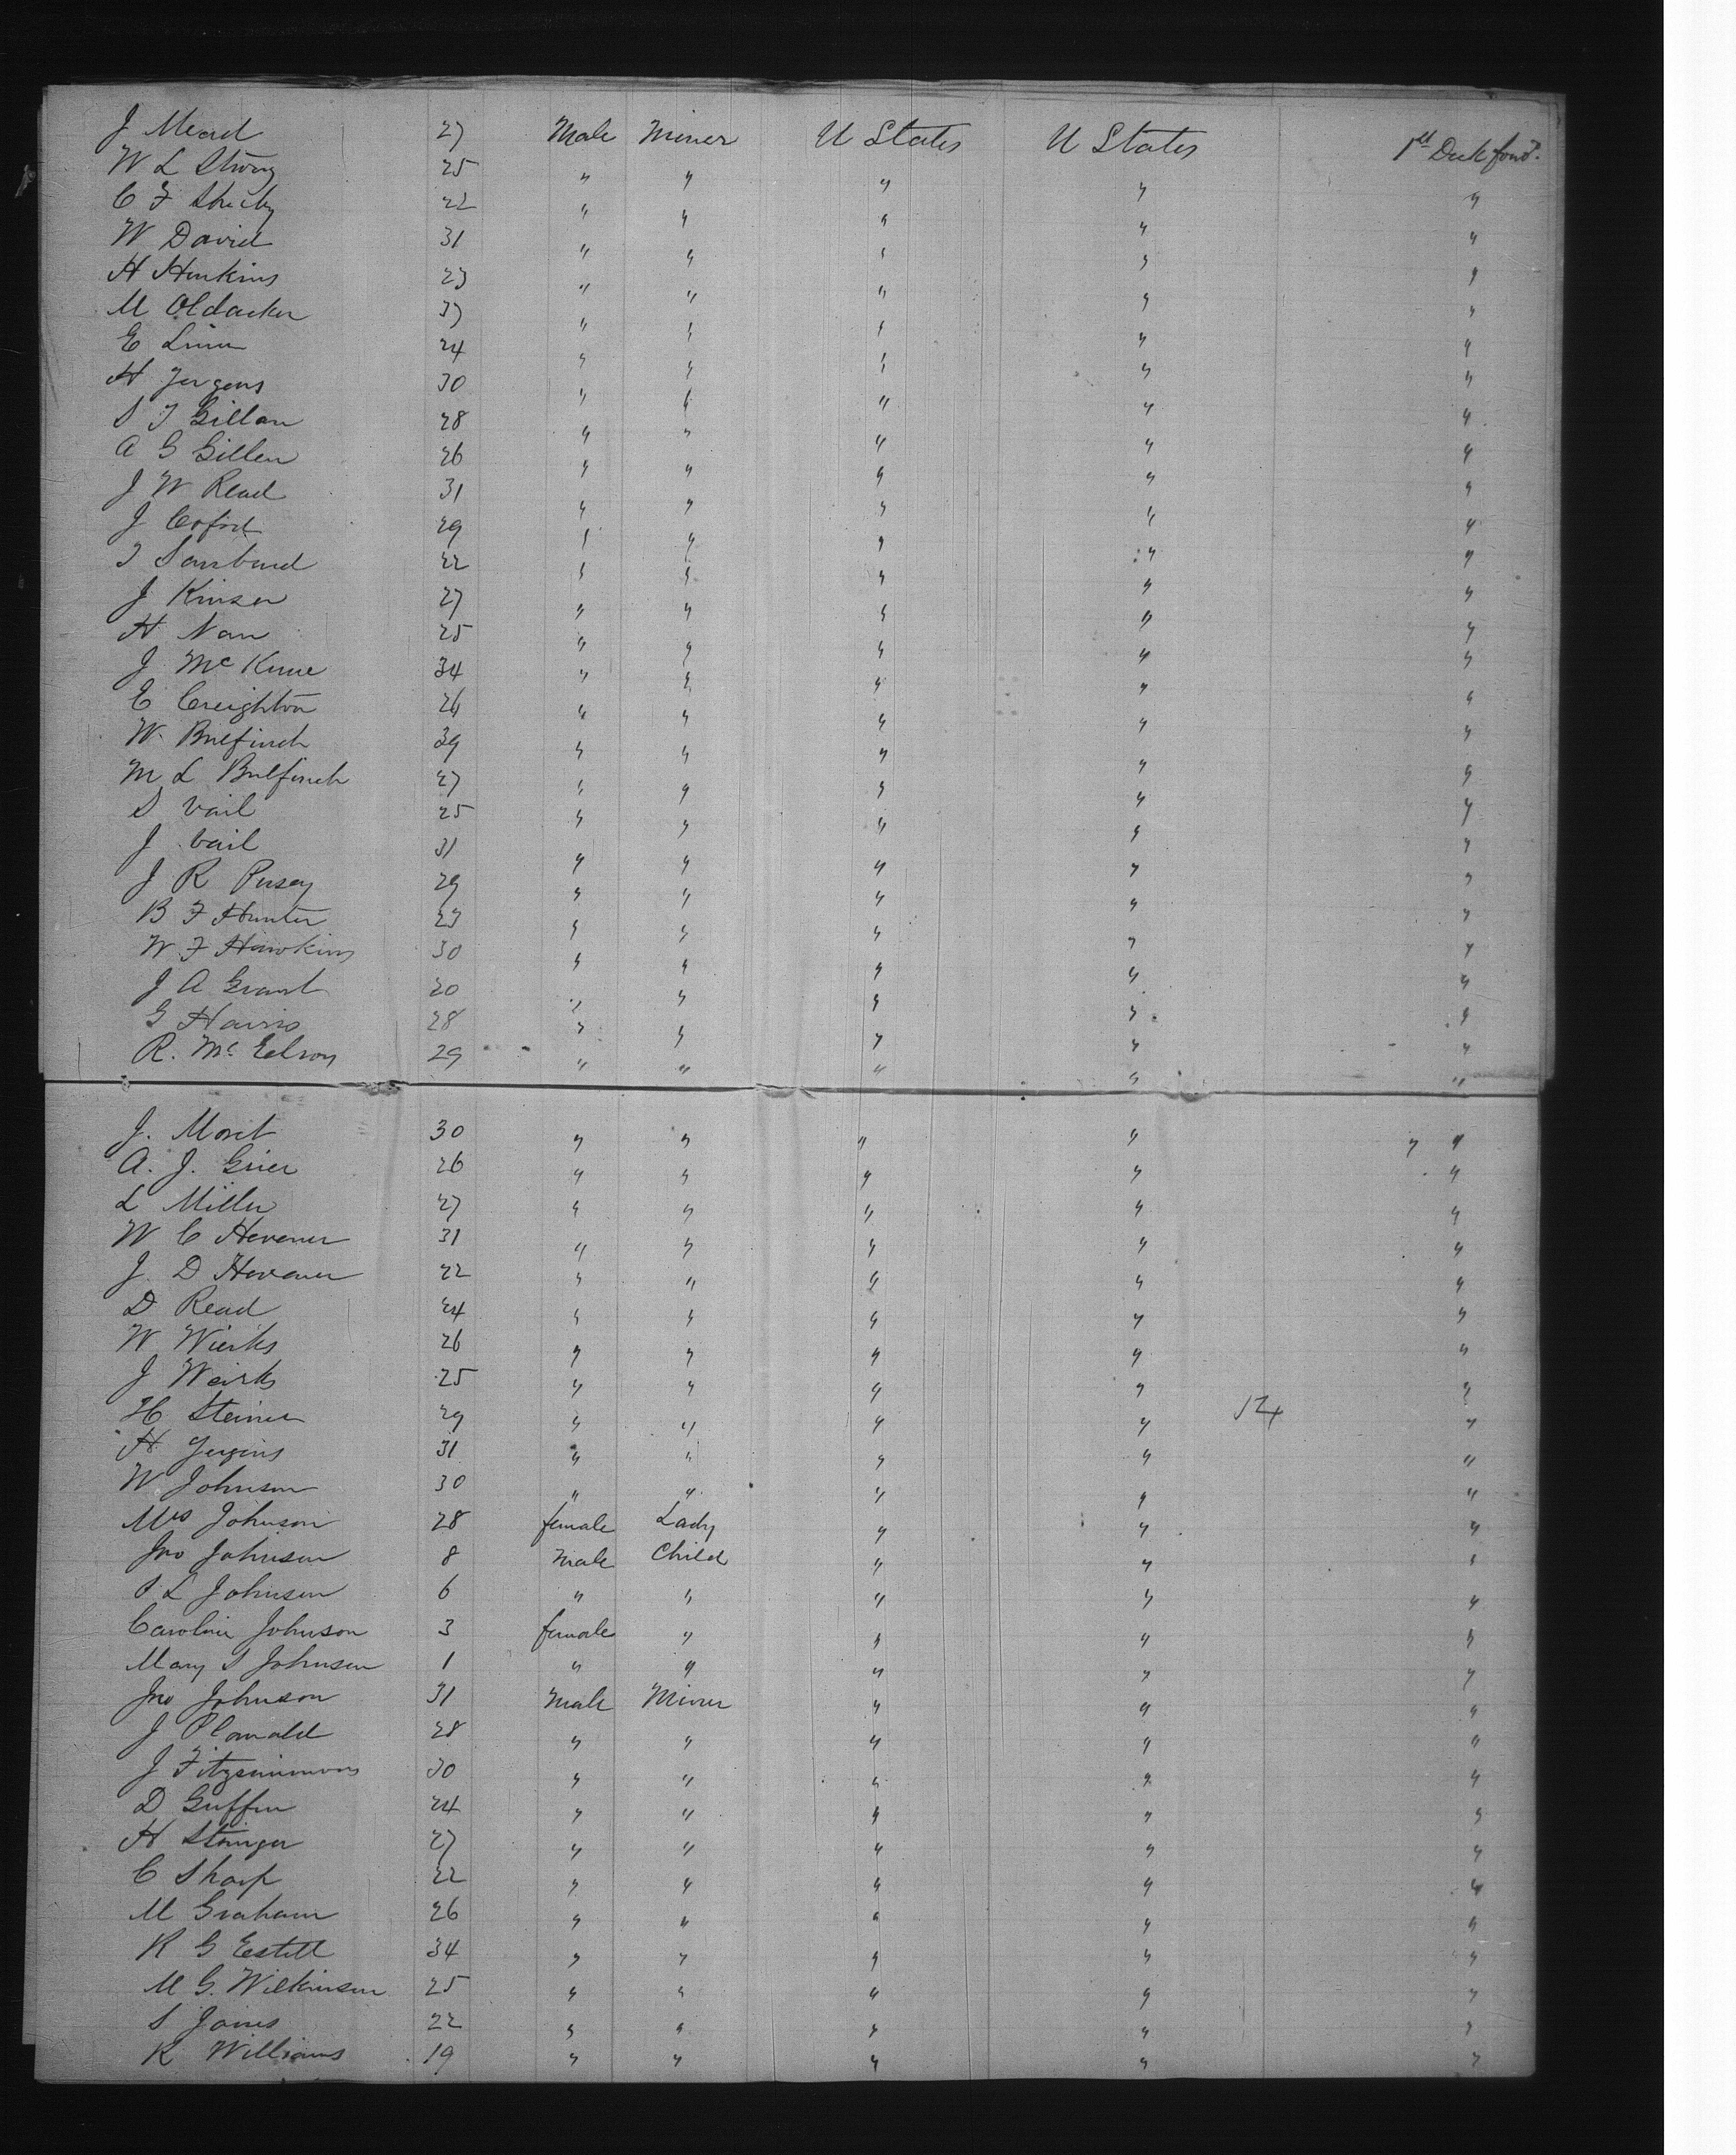 J Mead 27 Male Miner U States U States 1st Deck forwd.
W L Strong 25 " " " " "
C F Sheeby 22 " " " " "
W David 31 " " " " "
H Hinkins 23 " " " " "
M Oldacker 37 " " " " "
E Linn 24 " " " " "
H Jergens 30 " " " " "
S T Gillan 28 " " " " "
A G Gillen 26 " " " " "
J W Read 31 " " " " "
J 29 " " " " "
T 22 " " " " "
J Kinser 27 " " " " "
H Nan 25 " " " " "
J McKune 34 " " " " "
E Creighton 26 " " " " "
W. Bulfinch 39 " " " " "
M L Bulfinch 27 " " " " "
S Vail 25 " " " " "
J Vail 31 " " " " "
J R Pusey 29 " " " " "
B F Hunter 23 " " " " "
W F Hawkins 30 " " " " "
J A Grant 20 " " " " "
G Harris 28 " " " " "
R. Mc Eelroy 29 " " " " "
J. Moret 30 " " " " " "
A. J. Grier 26 " " " " "
L Miller 27 " " " " "
W C Hevener 31 " " " " "
J. D Hevener 22 " " " " "
D Read 24 " " " " "
W Wierks 26 " " " " "
J Weirks 25 " " " " "
H Steiner 29 " " " " "
H Jergins 31 " " " " "
W Johnson 30 " " " " "
Mrs Johnson 28 female Lady " " "
Jno Johnson 8 male Child " " "
P L Johnson 6 " " " " "
Caroline Johnson 3 female " " " "
Mary S Johnson 1 " " " " "
Jno Johnson 31 Male Miner " " "
J 28 " " " " "
J Fitzsimmons 30 " " " " "
D Griffin 24 " " " " "
H Stringer 27 " " " " "
C Sharp 22 " " " " "
M Graham 26 " " " " "
R G Estill 34 " " " " "
M G. Wilkinson 25 " " " " "
S Jones 22 " " " " "
R Williams 19 " " " " "